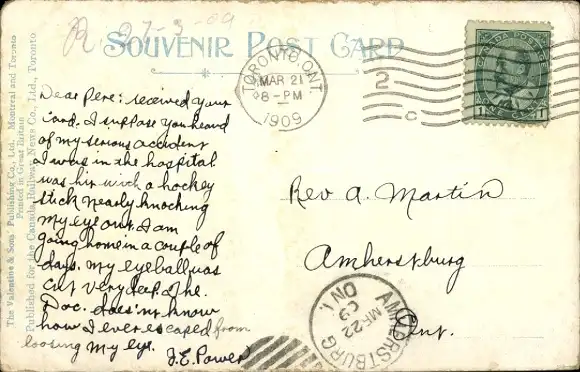 R 27-3-09
SOUVENIR POST CARD
TORONTO, ONT.
MAR 21
8-PM
1909
2
C
CANADA POSTAGE
1 1
Dear Pere: received your
card. I suppose you heard
of my serious accident
I was in the hospital
was hit with a hockey
stick nearly knocking
my eye out. I am
going home in a couple of
days. My eyeball was
cut very deep & the
Doc. does'nt know
how I ever escaped from
loosing my eye.
J.E. Power
Rev A. Martin
Amherstburg
Ont.
AMHERSTBURG
ONT.
MR 22
09
The Valentine & Sons' Publishing Co., Ltd., Montreal and Toronto
Printed in Great Britain
Published for the Canada Railway News Co., Ltd., Toronto.